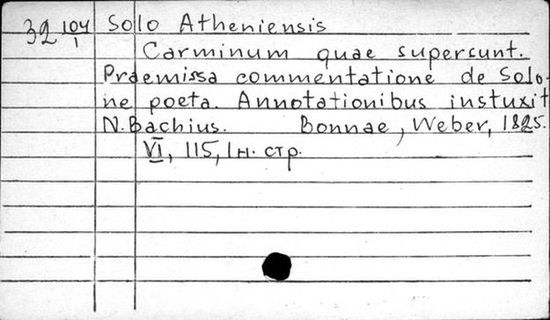 32 104/1 Solo Atheniensis
Carminum quae supersunt.
Praemissa commentatione de Solo-
ne poeta. Annotationibus instuxit
N. Bachius. Bonnae, Weber, 1825.
VI, 115, 1 н. стр.